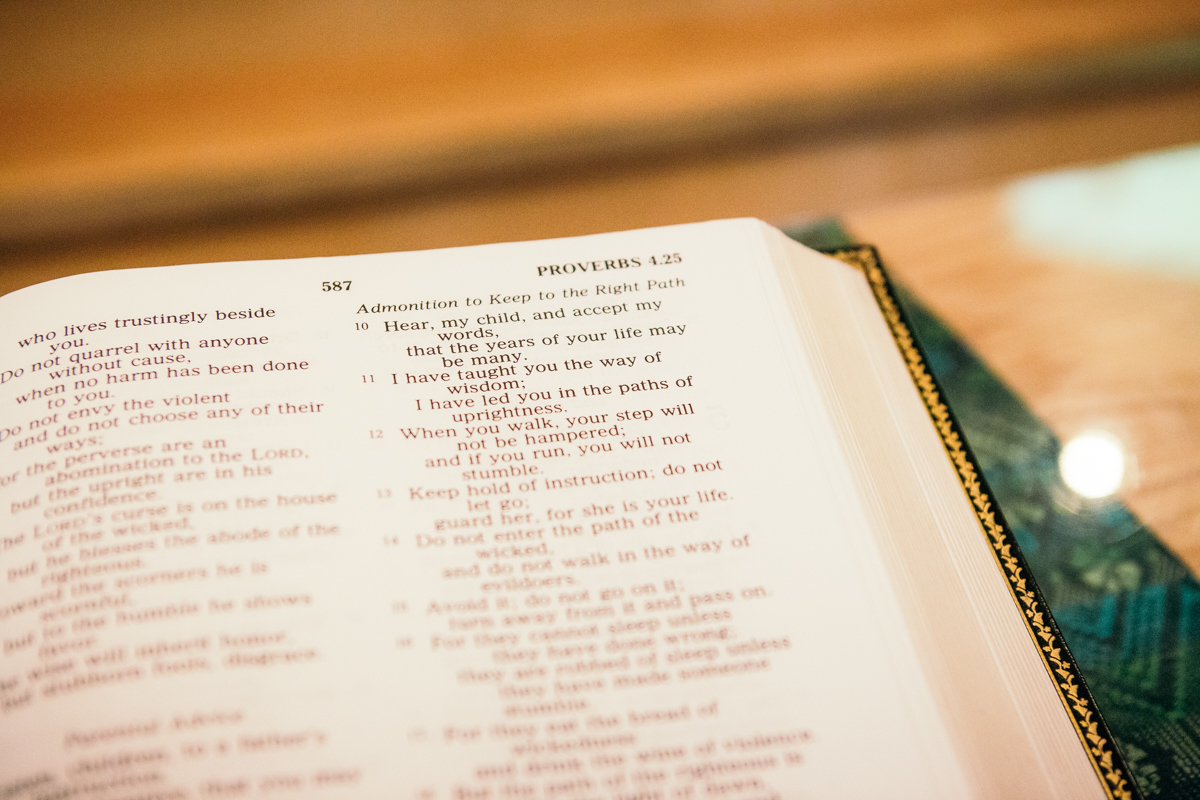 587
PROVERBS 4.25
who lives trustingly beside
you.
Do not quarrel with anyone
without cause,
when no harm has been done
to you.
Do not envy the violent
and do not choose any of their
ways;
for the perverse are an
abomination to the LORD,
but the upright are in his
confidence.
The LORD's curse is on the house
of the wicked,
but he blesses the abode of the
righteous.
toward the scorners he is
scornful,
but to the humble he shows
favor
wise will inherit honor,
but stubborn fools, disgrace.
Parental Advice
children, to a father's
that you may
Admonition to Keep to the Right Path
10 Hear, my child, and accept my
words,
that the years of your life may
be many.
11 I have taught you the way of
wisdom;
I have led you in the paths of
uprightness.
12 When you walk, your step will
not be hampered;
and if you run, you will not
stumble.
13 Keep hold of instruction; do not
let go;
guard her, for she is your life.
14 Do not enter the path of the
wicked,
and do not walk in the way of
evildoers.
15 Avoid it; do not go on it;
turn away from it and pass on.
16 For they cannot sleep unless
they have done wrong;
they are robbed of sleep unless
they have made someone
stumble.
17 For they eat the bread of
wickedness
and drink the wine of violence.
But the path of the righteous is
light of dawn,